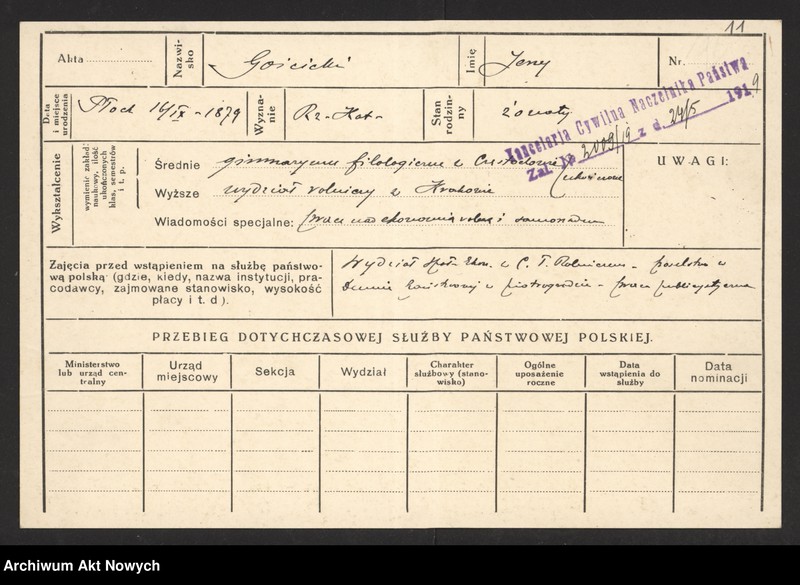 11
Akta
Nazwisko
Gościcki
Imię
Jerzy
Nr.
Data i miejsce urodzenia
Płock 16/IX - 1879
Wyznanie
Rz-Kat-
Stan rodzinny
żonaty
Kancelarja Cywilna Naczelnika Państwa
Zał. № 2009/19 z d. 24/5 1919
Wykształcenie
wymienić zakład naukowy, ilość ukończonych klas, semestrów i t. p.
Średnie
gimnazyum filologiczne w
UWAGI:
Wyższe
wydział rolniczy w Krakowie
(ukończone
Wiadomości specjalne:
praca nad ekonomią rolną i samorządem
Zajęcia przed wstąpieniem na służbę państwo-
wą polską (gdzie, kiedy, nazwa instytucji, pra-
codawcy, zajmowane stanowisko, wysokość
płacy i t. d.).
Wydział Społ. Ekon. w C. T. Rolniczem - poselstwo w
Dumie Państwowej w Piotrogrodzie - praca publicystyczna
PRZEBIEG DOTYCHCZASOWEJ SŁUŻBY PAŃSTWOWEJ POLSKIEJ.
Ministerstwo lub urząd centralny
Urząd miejscowy
Sekcja
Wydział
Charakter służbowy (stanowisko)
Ogólne uposażenie roczne
Data wstąpienia do służby
Data nominacji
Archiwum Akt Nowych